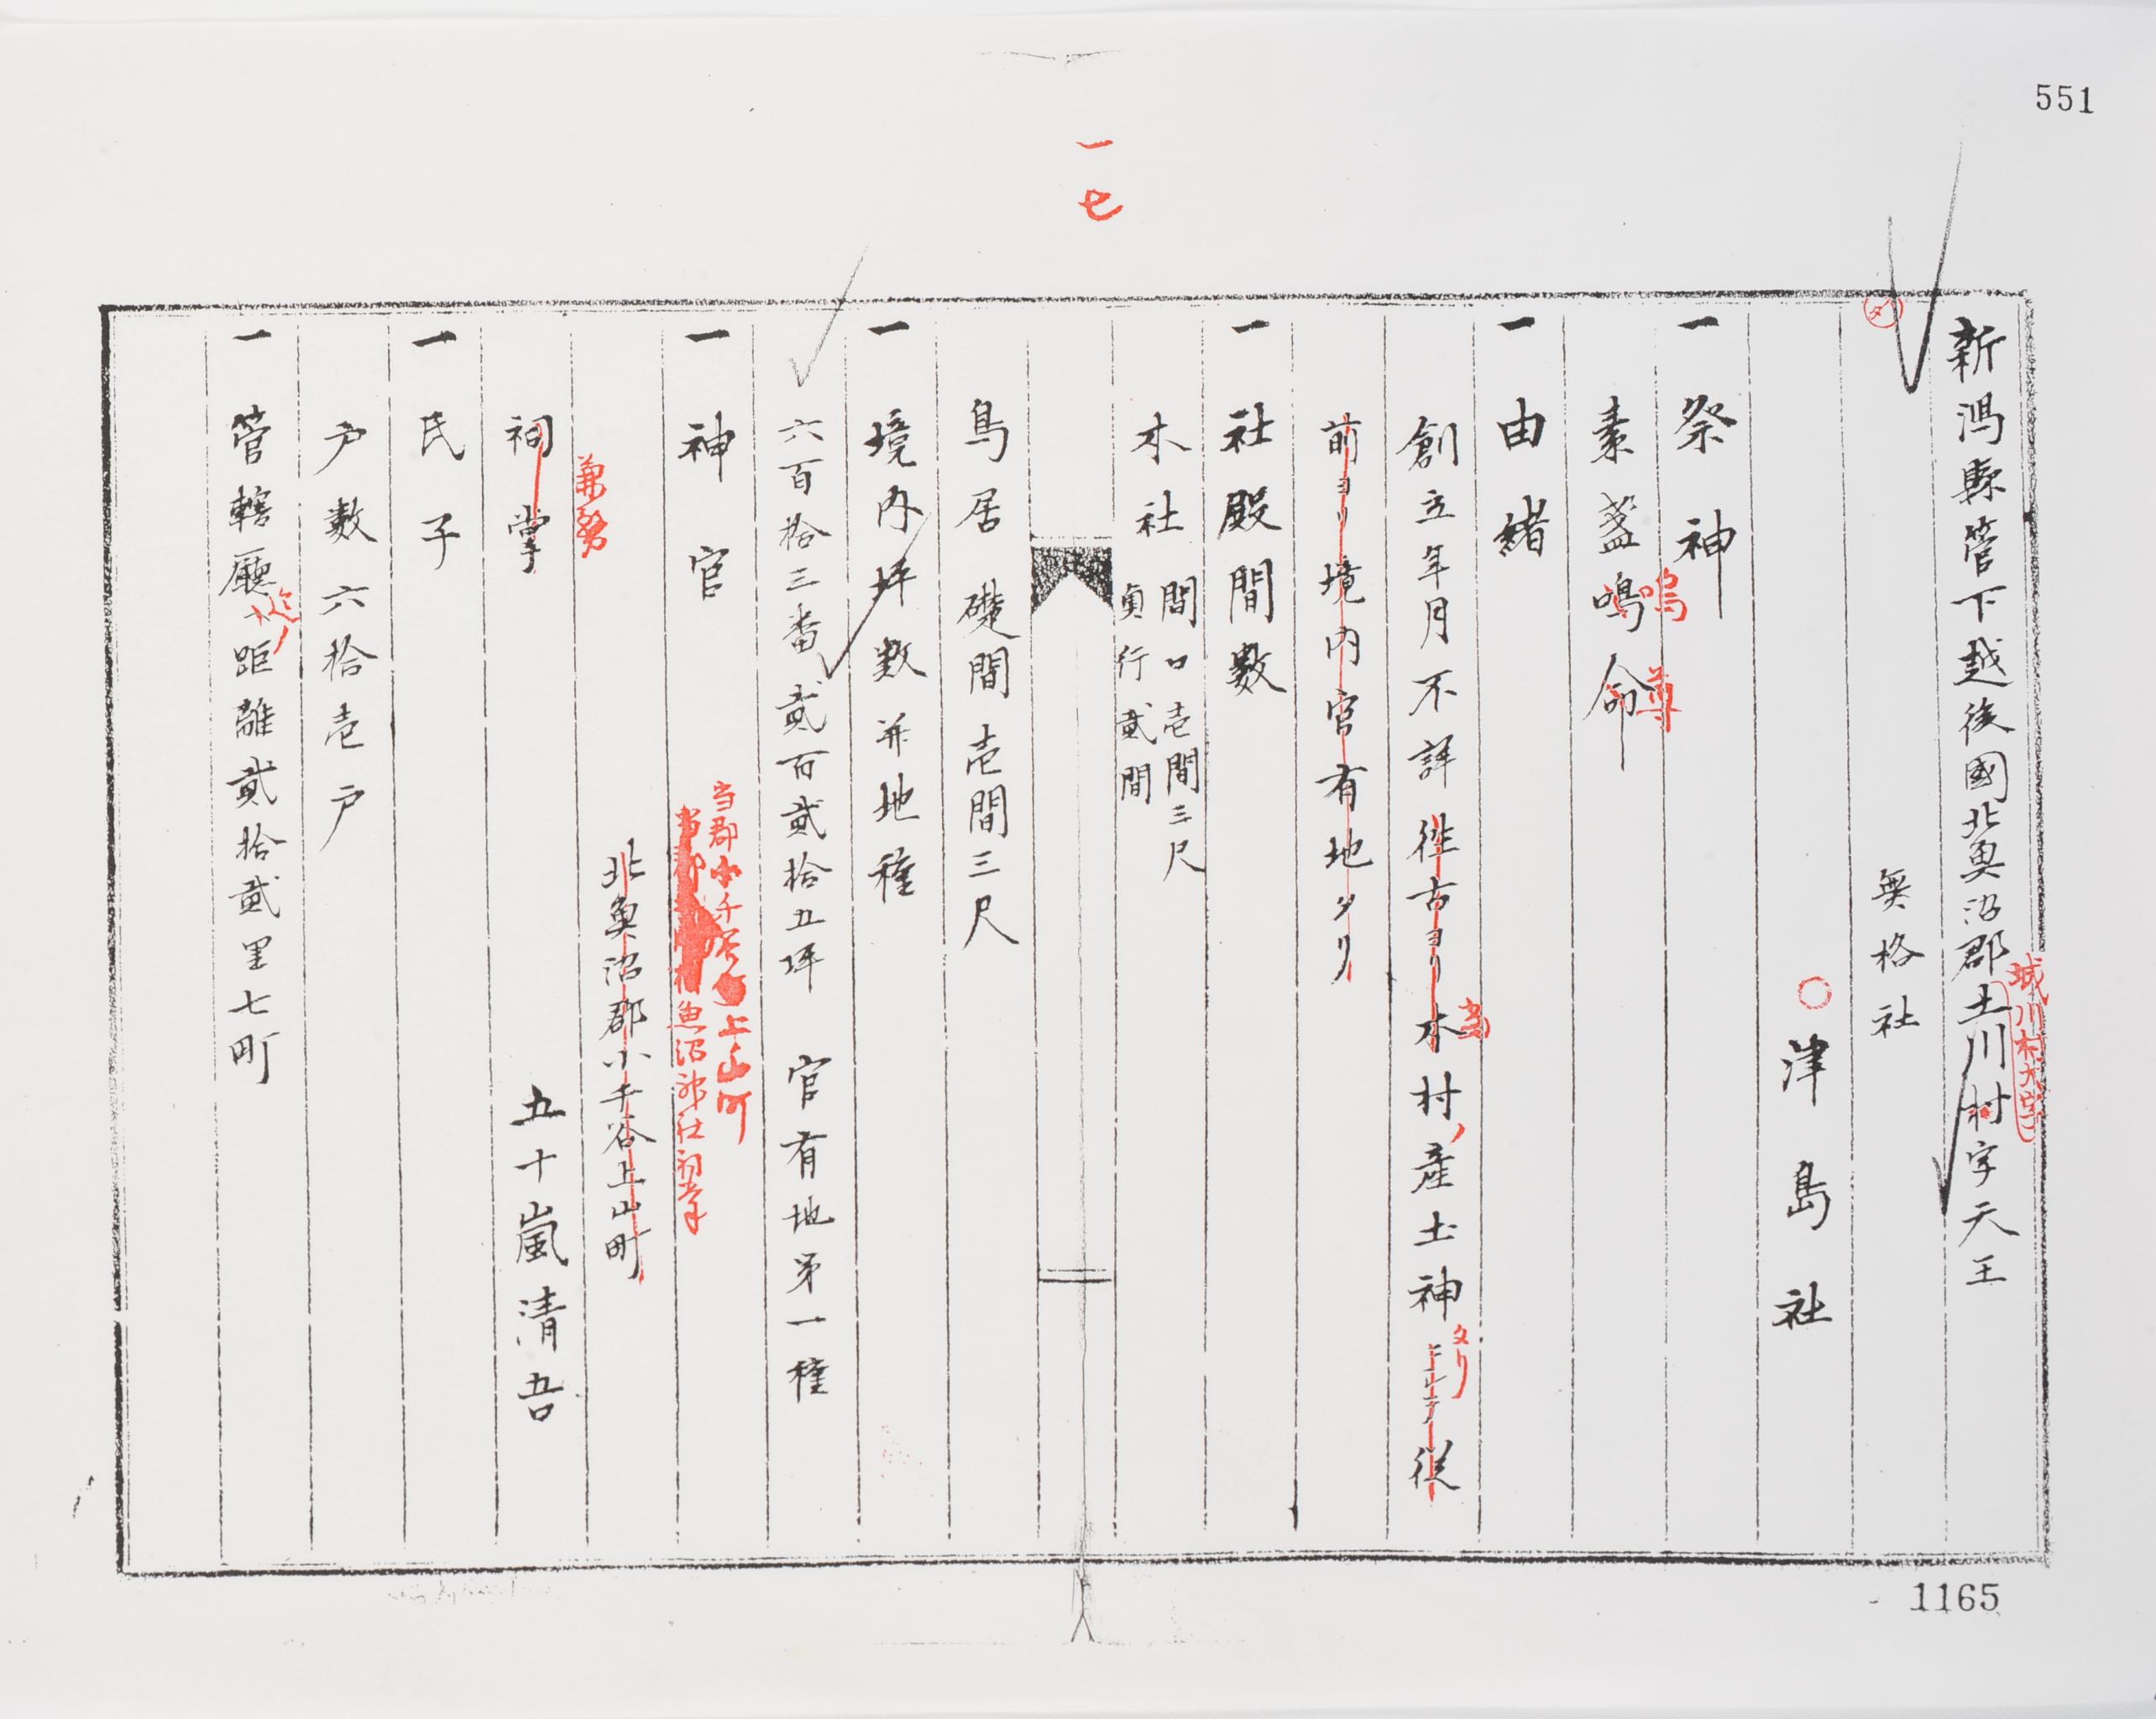 551
一七
新潟縣管下越後國北魚沼郡土川村字天王
城川村大字
無格社
○津島社
一 祭神
素盞鳴命
嗚
尊
一 由緒
創立年月不詳往古ヨリ本村産土神ニシテ従
当
タリ
前ヨリ境内官有地タリ
一 社殿間數
本社 間口壱間三尺
奥行貳間
鳥居 礎間壱間三尺
一 境内坪数并地種
六百拾三番 貳百貳拾五坪 官有地第一種
一 神官
当郡小千谷上山町
魚沼神社祠掌
北魚沼郡小千谷上山町
兼務
祠掌 五十嵐清吾
一 氏子
戸數六拾壱戸
一 管轄廳距離貳拾貳里七町
迄ノ
1165